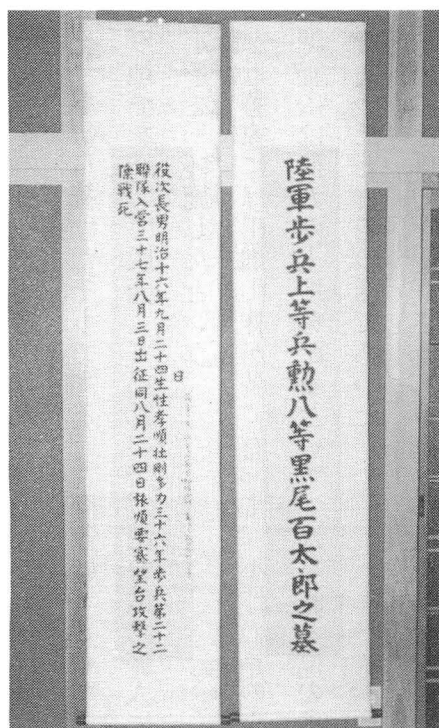 陸軍歩兵上等兵勲八等黒尾百太郎之墓
役次長男明治十六年九月二十四日生性孝順壮剛多力三十六年歩兵第二十二
聯隊入営三十七年八月三日出征同八月二十四日旅順要塞望台攻撃之
際戦死